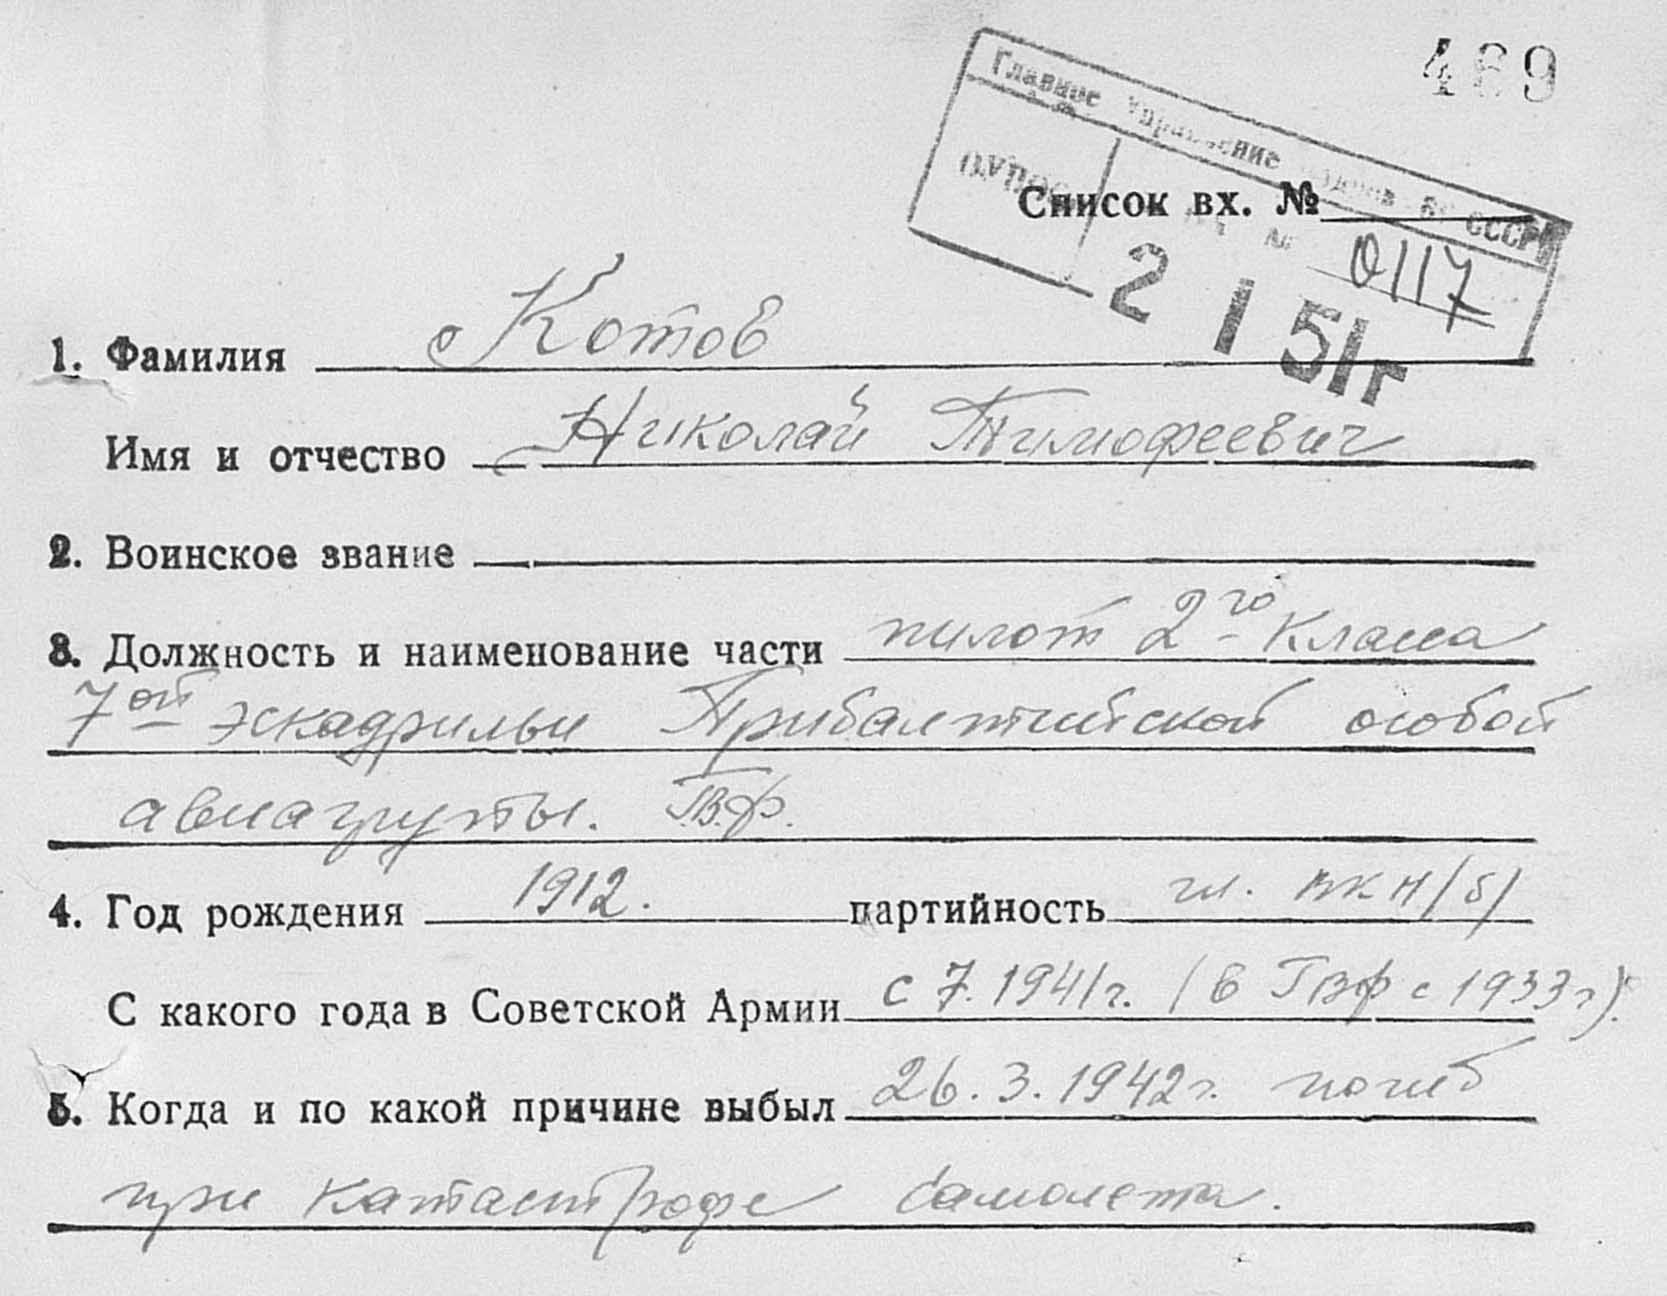 469
Главное Управление Кадров ВС СССР
Список вх. №
0117
2 1 51г
1. Фамилия Котов
Имя и отчество Николай Тимофеевич
2. Воинское звание
3. Должность и наименование части пилот 2го класса
7ой эскадрильи Прибалтийской особой
авиагруппы. ГВФ.
4. Год рождения 1912. партийность чл. ВКП/б/
С какого года в Советской Армии с 7.1941г. (в ГВФ с 1933г).
5. Когда и по какой причине выбыл 26.3.1942г. погиб
при катастрофе самолета.